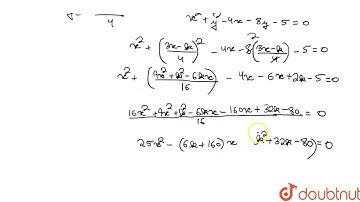 4
x² + y² - 4x - 8y - 5 = 0
x² + (3x-k/4)² - 4x - 8(3x-k/4) - 5 = 0
x² + (9x²+k²-6kx/16) - 4x - 6x + 2k - 5 = 0
16x² + 9x² + k² - 6kx - 160x + 32k - 80 / 16 = 0
25x² - (6k+160)x k² + 32k - 80) = 0
doubtnut